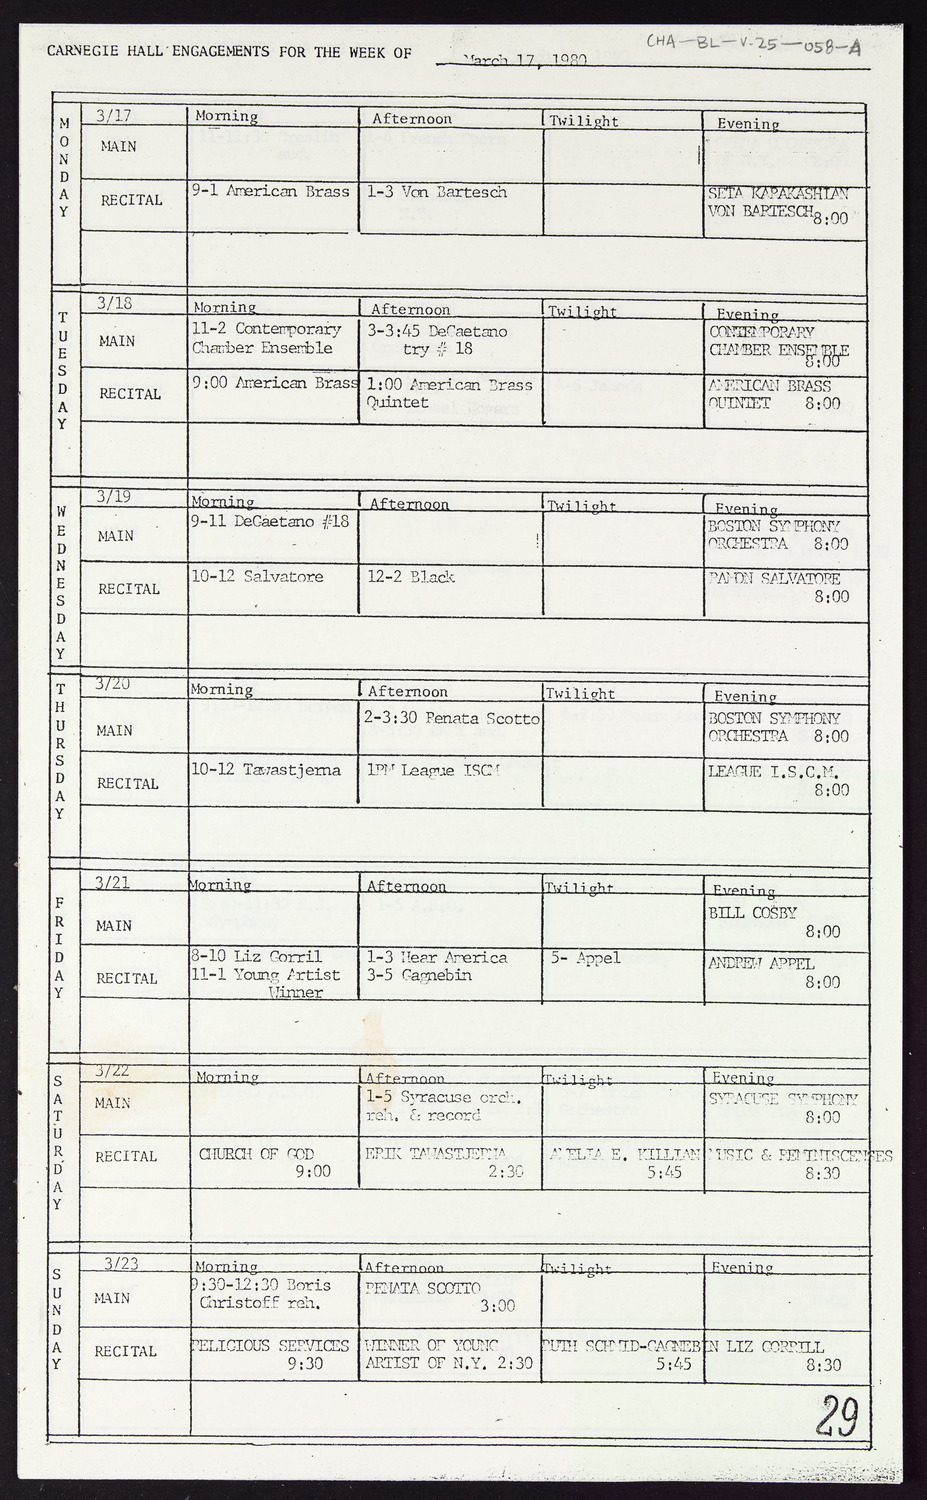 CHA-BL-V-25-058-A
CARNEGIE HALL ENGAGEMENTS FOR THE WEEK OF March 17, 1980
MONDAY
3/17 Morning Afternoon Twilight Evening
MAIN
RECITAL 9-1 American Brass 1-3 Von Bartesch SETA KARAKASHIAN
VON BARTESCH 8:00
TUESDAY
3/18 Morning Afternoon Twilight Evening
MAIN 11-2 Contemporary 3-3:45 DeGaetano CONTEMPORARY
Chamber Ensemble try # 18 CHAMBER ENSEMBLE
8:00
RECITAL 9:00 American Brass 1:00 American Brass AMERICAN BRASS
Quintet QUINTET 8:00
WEDNESDAY
3/19 Morning Afternoon Twilight Evening
MAIN 9-11 DeGaetano #18 BOSTON SYMPHONY
ORCHESTRA 8:00
RECITAL 10-12 Salvatore 12-2 Black RAMON SALVATORE
8:00
THURSDAY
3/20 Morning Afternoon Twilight Evening
MAIN 2-3:30 Renata Scotto BOSTON SYMPHONY
ORCHESTRA 8:00
RECITAL 10-12 Tawastjerna 1PM League ISCM LEAGUE I.S.C.M.
8:00
FRIDAY
3/21 Morning Afternoon Twilight Evening
MAIN BILL COSBY
8:00
RECITAL 8-10 Liz Gorril 1-3 Hear America 5- Appel ANDREW APPEL
11-1 Young Artist 3-5 Gagnebin 8:00
Winner
SATURDAY
3/22 Morning Afternoon Twilight Evening
MAIN 1-5 Syracuse orch. SYRACUSE SYMPHONY
reh. & record 8:00
RECITAL CHURCH OF GOD ERIK TAWASTJERNA AMELIA E. KILLIAN MUSIC & REMINISCENSES
9:00 2:30 5:45 8:30
SUNDAY
3/23 Morning Afternoon Twilight Evening
MAIN 9:30-12:30 Boris RENATA SCOTTO
Christoff reh. 3:00
RECITAL RELIGIOUS SERVICES WINNER OF YOUNG RUTH SCHMID-GAGNEBIN LIZ GORRILL
9:30 ARTIST OF N.Y. 2:30 5:45 8:30
29